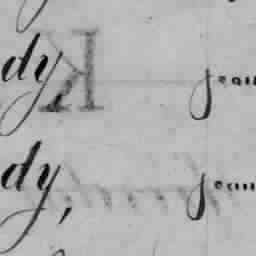 dy, jean
dy, jean